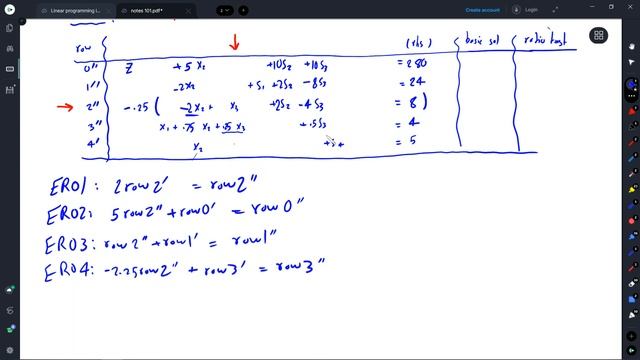 Linear programming I...
notes 101.pdf*
Create account
Sign in
row (rhs) basic sol ratio test
0'' Z + 5 x2 + 10 S2 + 10 S3 = 280
1'' - 2 x2 + S1 + 2 S2 - 8 S3 = 24
2'' - .25 ( - 2 x2 + x3 + 2 S2 - 4 S3 = 8 )
3'' x1 + .75 x2 + .25 x3 + .5 S3 = 4
4' x2 = 5
ERO1 : 2 row 2' = row 2''
ERO2: 5 row 2'' + row 0' = row 0''
ERO3 : row 2'' + row 1' = row 1''
ERO4: -2.25 row 2'' + row 3' = row 3''